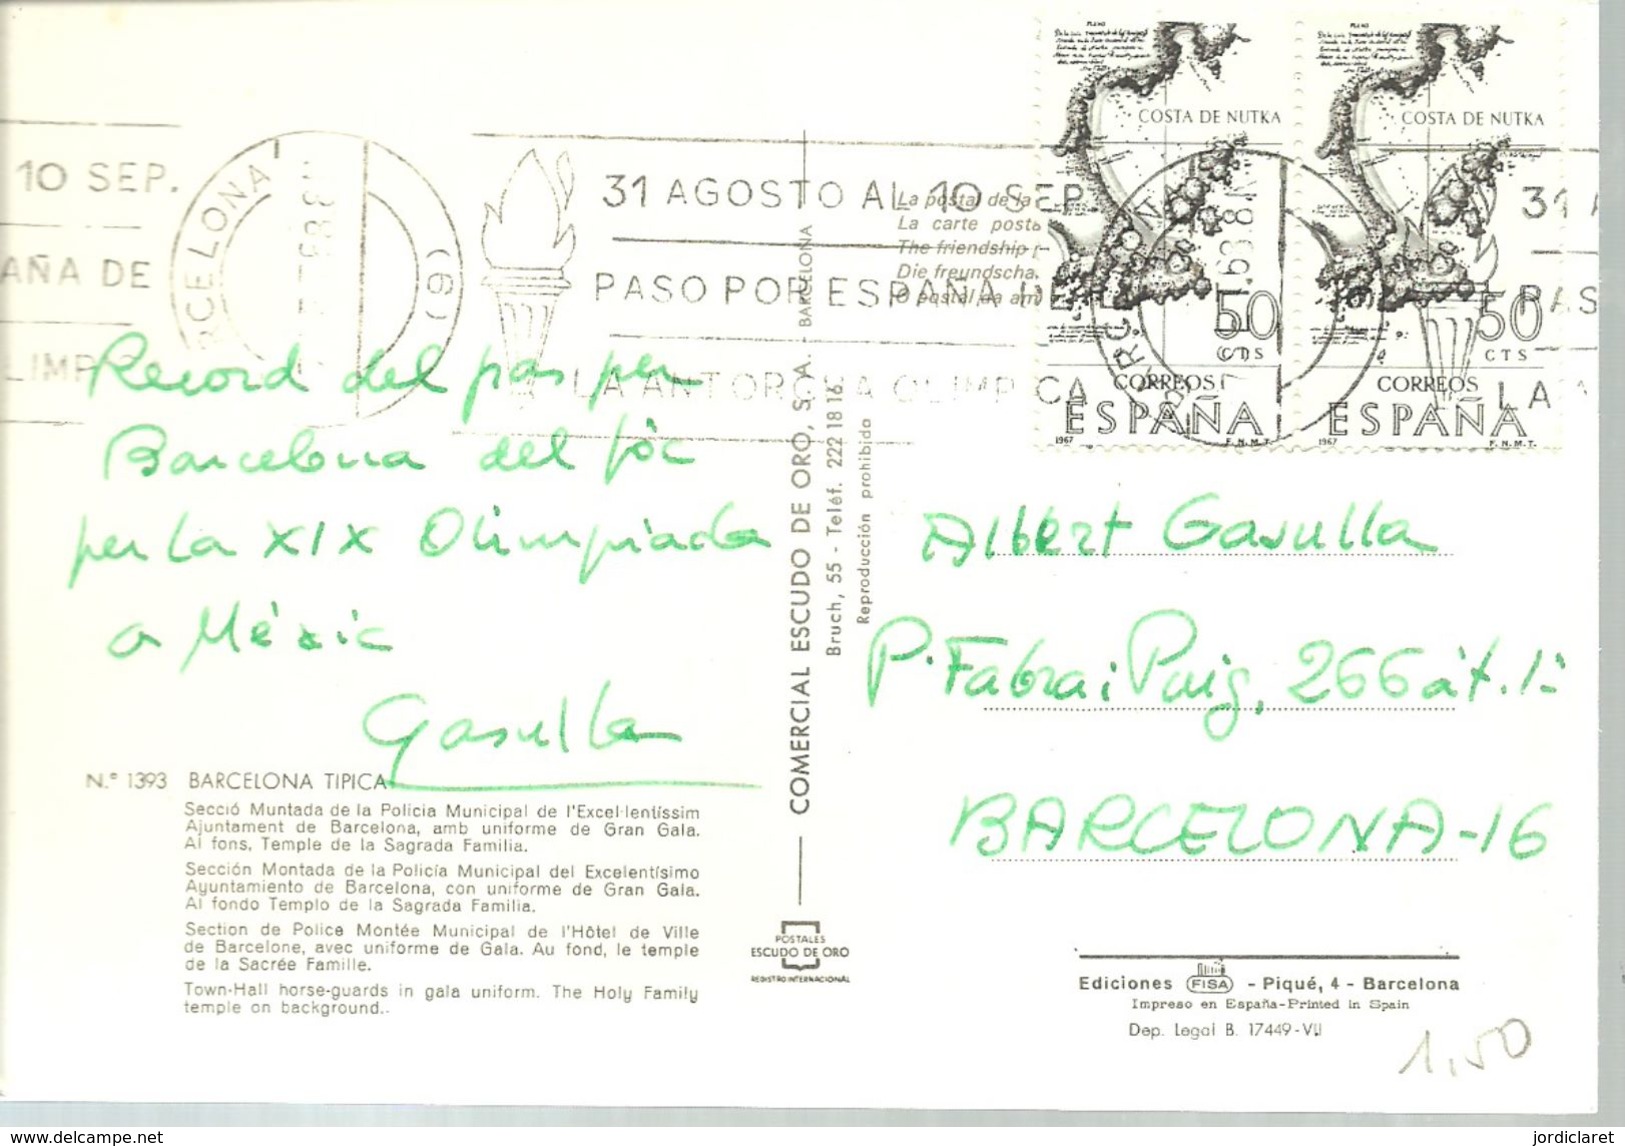 10 SEP.
AÑA DE
LIMP
BARCELONA
(6)
31 AGOSTO AL 10 SEP.
PASO POR ESPAÑA DE
LA ANTORCHA OLIMPICA
La postal de la
La carte posta
The friendship
Die freundscha
O postal da am
COSTA DE NUTKA
50
CTS
CORREOS
ESPAÑA
1967
F.N.M.T.
COSTA DE NUTKA
50
CTS
CORREOS
ESPAÑA
1967
F.N.M.T.
31 A
PAS
LA A
Record del pas per
Barcelona del fòc
per la XIX Olimpiada
a Mèxic
Gasulla
N.º 1393 BARCELONA TIPICA
Secció Muntada de la Policia Municipal de l'Excel·lentíssim
Ajuntament de Barcelona, amb uniforme de Gran Gala.
Al fons, Temple de la Sagrada Familia.
Sección Montada de la Policía Municipal del Excelentísimo
Ayuntamiento de Barcelona, con uniforme de Gran Gala.
Al fondo Templo de la Sagrada Familia.
Section de Police Montée Municipal de l'Hôtel de Ville
de Barcelone, avec uniforme de Gala. Au fond, le temple
de la Sacrée Famille.
Town-Hall horse-guards in gala uniform. The Holy Family
temple on background..
COMERCIAL ESCUDO DE ORO, S. A. - BARCELONA
Bruch, 55 - Teléf. 222 18 16.
Reproducción prohibida
POSTALES
ESCUDO DE ORO
REGISTRO INTERNACIONAL
Albert Gasulla
P. Fabra i Puig, 266 àt. 1ª
BARCELONA-16
Ediciones FISA - Piqué, 4 - Barcelona
Impreso en España-Printed in Spain
Dep. Legal B. 17449-VII
1,50
jordiclaret